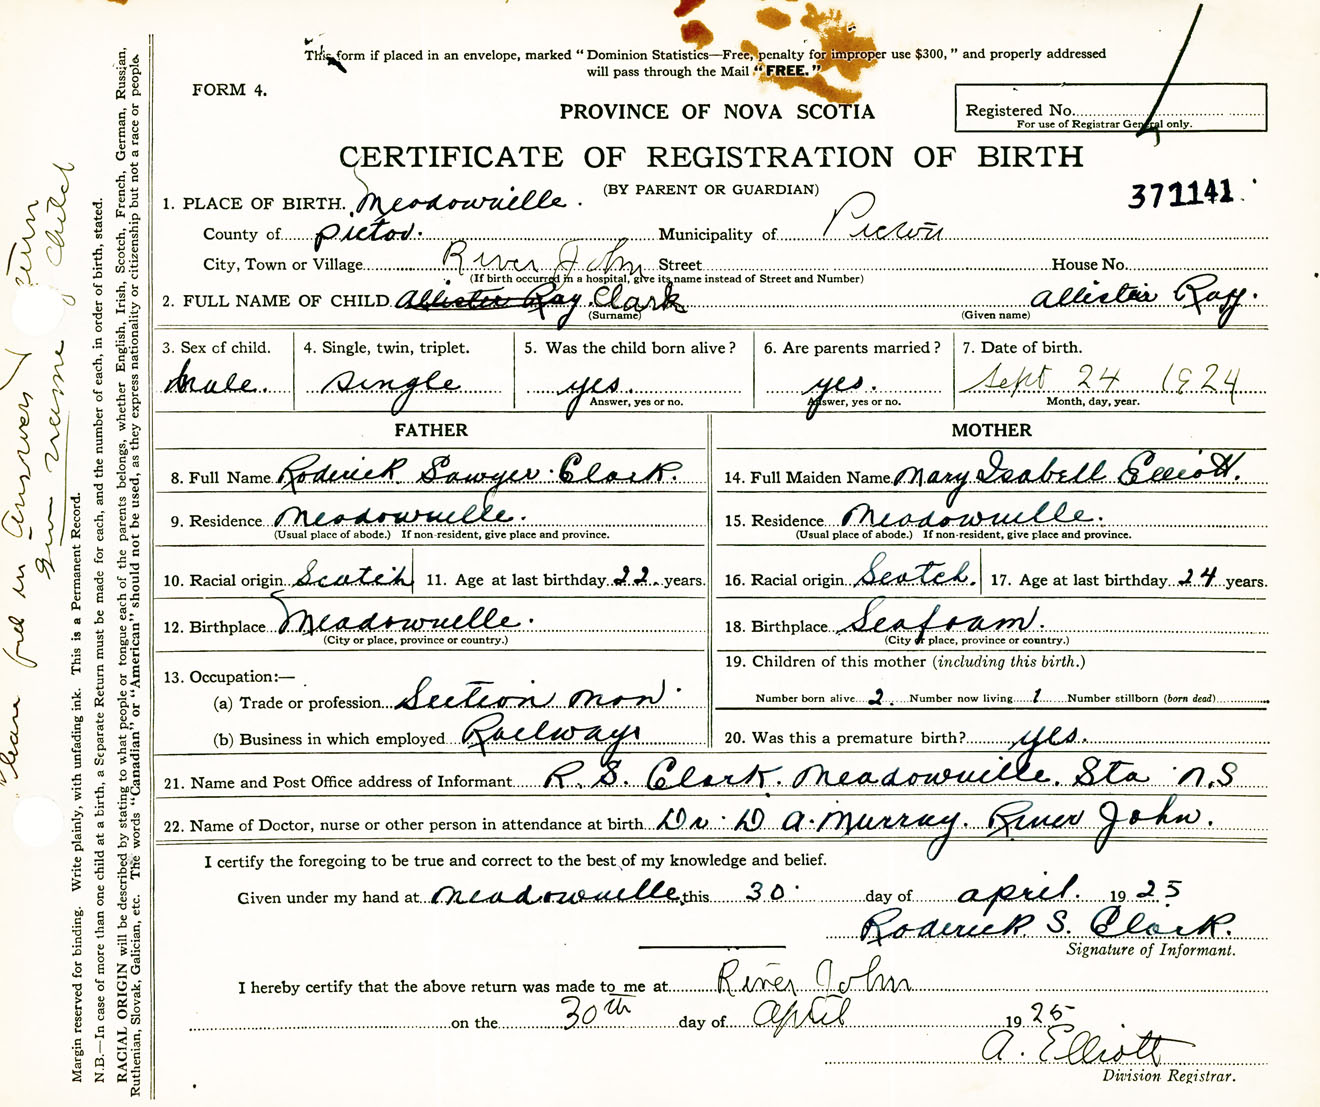 This form if placed in an envelope, marked "Dominion Statistics—Free, penalty for improper use $300," and properly addressed
will pass through the Mail "FREE."
FORM 4.
PROVINCE OF NOVA SCOTIA
Registered No.
For use of Registrar General only.
CERTIFICATE OF REGISTRATION OF BIRTH
(BY PARENT OR GUARDIAN)
371141
1. PLACE OF BIRTH. Meadowville.
County of Pictou. Municipality of Pictou
City, Town or Village River John Street House No.
(If birth occurred in a hospital, give its name instead of Street and Number)
2. FULL NAME OF CHILD Allister Ray Clark Allister Ray.
(Surname) (Given name)
3. Sex of child. 4. Single, twin, triplet. 5. Was the child born alive? 6. Are parents married? 7. Date of birth.
Male. single yes. yes. Sept 24 1924
Answer, yes or no. Answer, yes or no. Month, day, year.
FATHER MOTHER
8. Full Name Roderick Sawyer Clark. 14. Full Maiden Name Mary Isabell Elliott.
9. Residence Meadowville. 15. Residence Meadowville.
(Usual place of abode.) If non-resident, give place and province. (Usual place of abode.) If non-resident, give place and province.
10. Racial origin Scotch 11. Age at last birthday 22 years. 16. Racial origin Scotch. 17. Age at last birthday 24 years.
12. Birthplace Meadowville. 18. Birthplace Seafoam.
(City or place, province or country.) (City or place, province or country.)
13. Occupation:— 19. Children of this mother (including this birth.)
(a) Trade or profession Section man Number born alive 2. Number now living 1 Number stillborn (born dead)
(b) Business in which employed Railways 20. Was this a premature birth? yes.
21. Name and Post Office address of Informant R. S. Clark. Meadowville. Sta N.S
22. Name of Doctor, nurse or other person in attendance at birth Dr. D A. Murray. River John.
I certify the foregoing to be true and correct to the best of my knowledge and belief.
Given under my hand at Meadowville, this 30 day of April. 1925
Roderick S. Clark.
Signature of Informant.
I hereby certify that the above return was made to me at River John
on the 30th day of April 1925
A. Elliott
Division Registrar.
Margin reserved for binding. Write plainly, with unfading ink. This is a Permanent Record.
N.B.—In case of more than one child at a birth, a Separate Return must be made for each, and the number of each, in order of birth, stated.
RACIAL ORIGIN will be described by stating to what people or tongue each of the parents belongs, whether English, Irish, Scotch, French, German, Russian,
Ruthenian, Slovak, Galician, etc. The words "Canadian" or "American" should not be used, as they express nationality or citizenship but not a race or people.
Please fill in answers &
give name of child